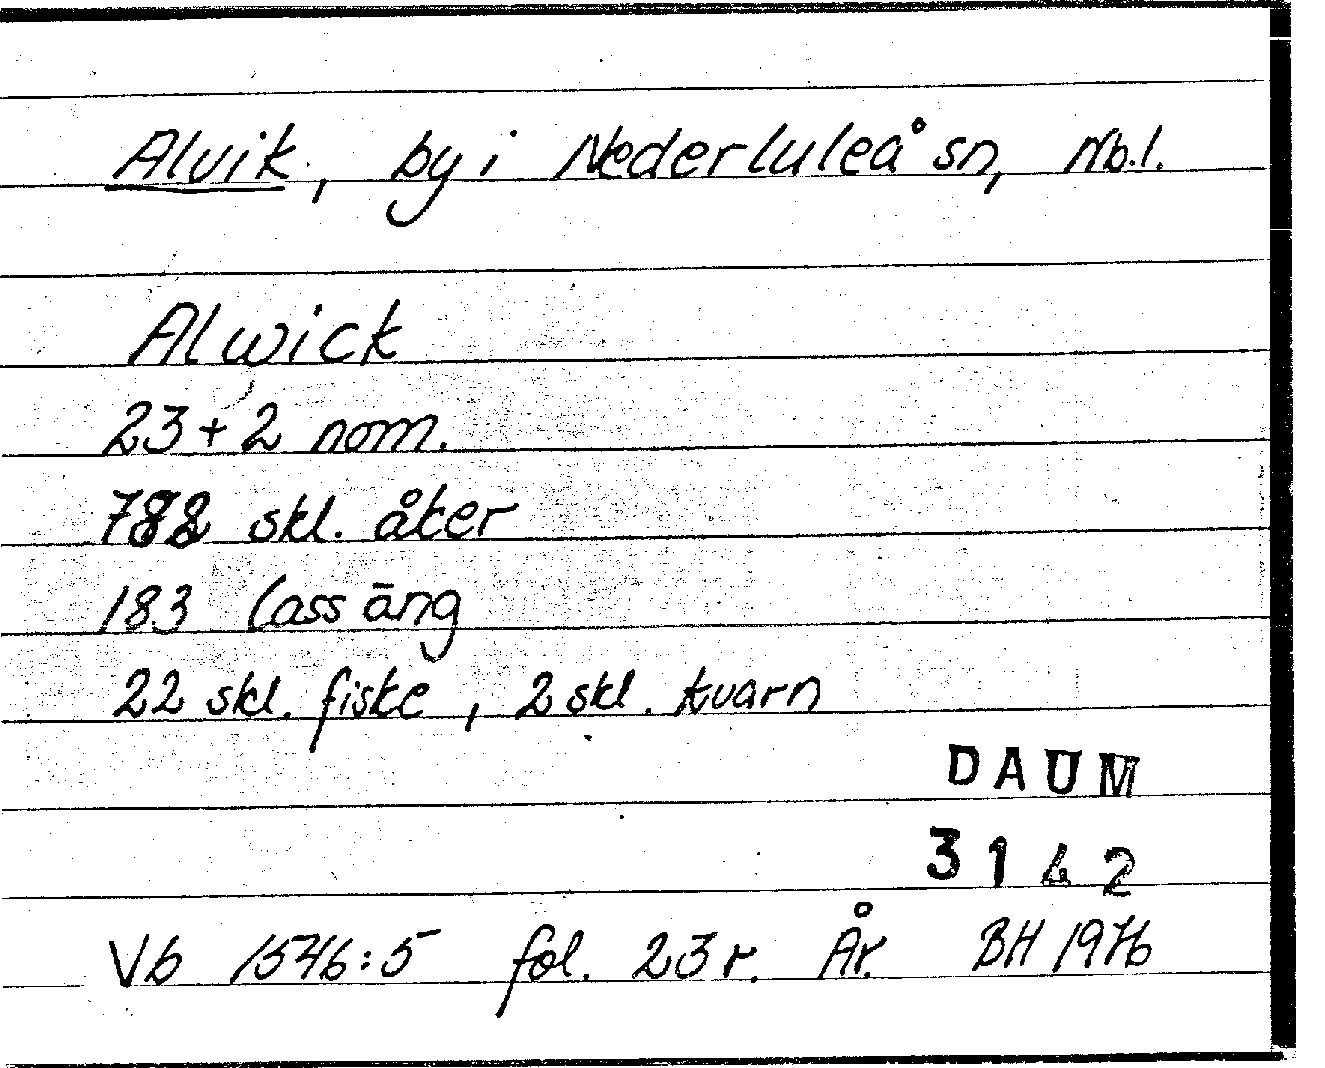 Alvik, by i Nederluleå sn, Nb.l.
Alwick
23+2 nom.
788 skl. åker
183 lass äng
22 skl. fiske, 2 skl. kvarn
DAUM
3142
Vb 1546:5 fol. 23 r. År. BH 1976